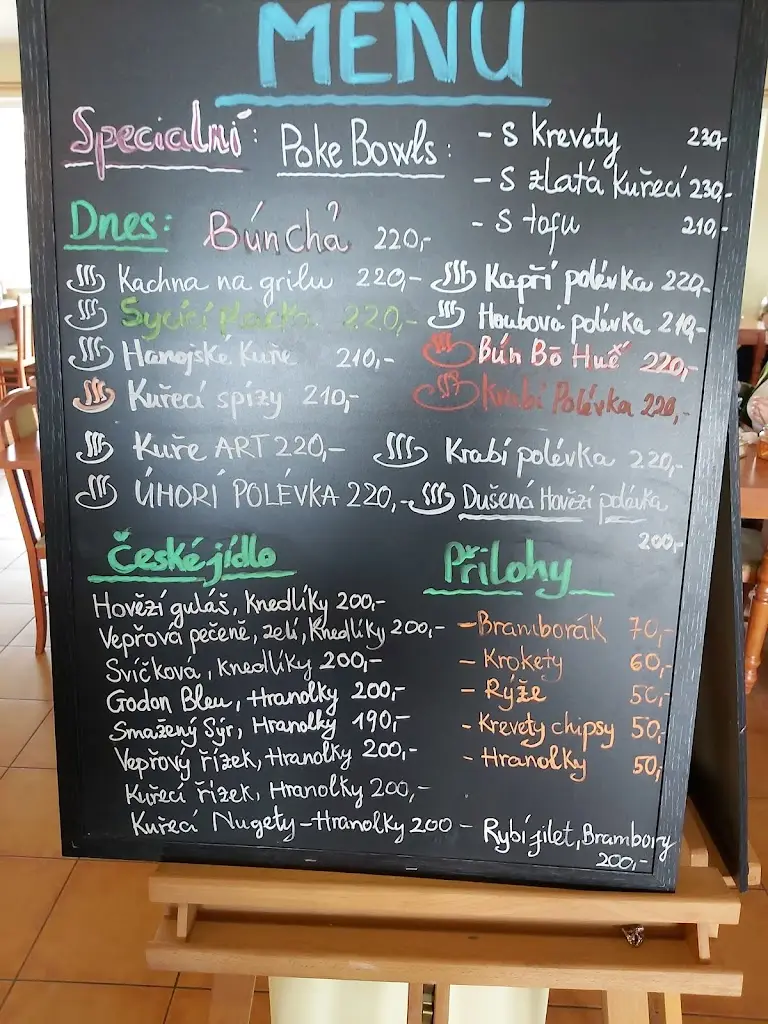 MENU
Specialní: Poke Bowls: - S Krevety 230,-
- S zlatá Kuřecí 230,-
- S tofu 210,-
Dnes: Bún Chả 220,-
Kachna na grilu 220,-
Kapří polévka 220,-
220,-
Houbová polévka 210,-
Hanojské Kuře 210,-
Bún Bō Huě 220,-
Kuřecí spízy 210,-
Krabí Polévka 220,-
Kuře ART 220,-
Krabí polévka 220,-
ÚHORÍ POLÉVKA 220,-
Dušená Hovězí polévka
200,-
České jídlo
Hovězí guláš, Knedlíky 200,-
Vepřová pečeně, zelí, Knedlíky 200,-
Svíčková, Knedlíky 200,-
Godon Bleu, Hranolky 200,-
Smažený Sýr, Hranolky 190,-
Vepřový řízek, Hranolky 200,-
Kuřecí řízek, Hranolky 200,-
Kuřecí Nugety-Hranolky 200
Přílohy
- Bramborák 70,-
- Krokety 60,-
- Rýže 50,-
- Krevety chipsy 50,-
- Hranolky 50,
- Rybí filet, Brambory
200,-